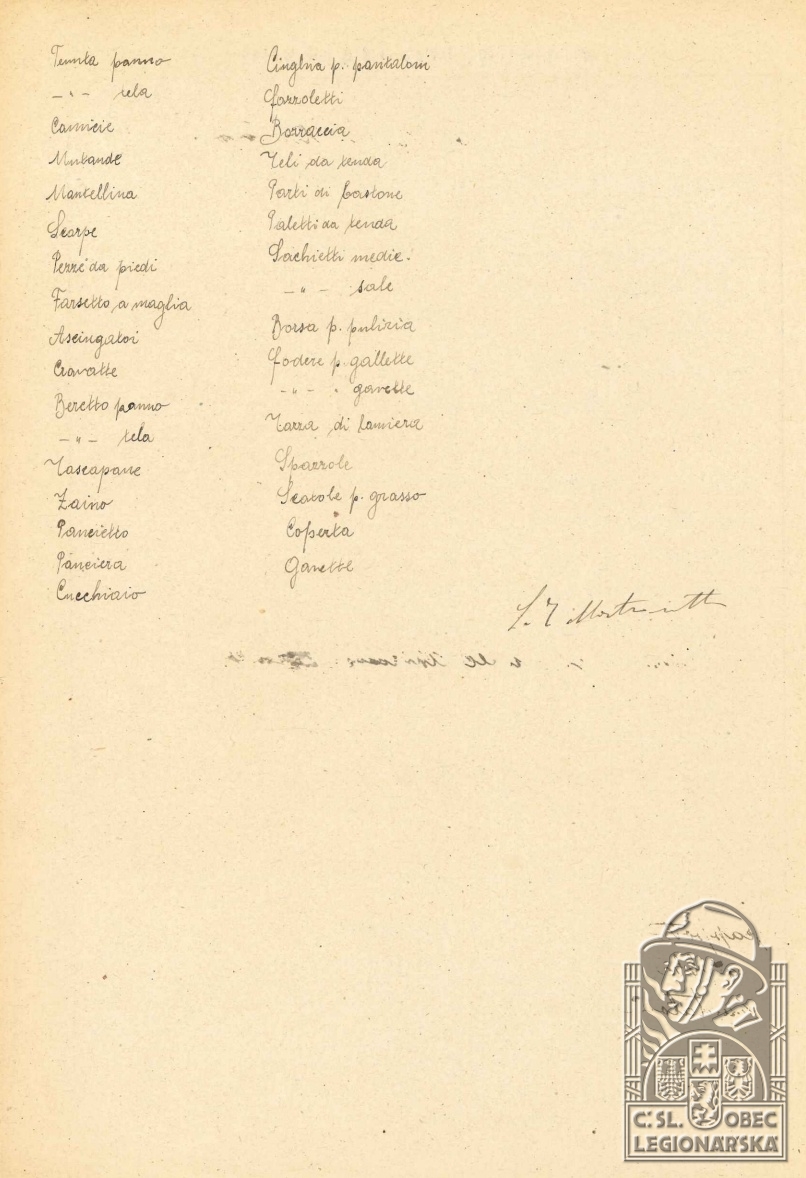 Tenuta panno
– " – tela
Camicie
Mutande
Mantellina
Scarpe
Pezze da piedi
Farsetto a maglia
Asciugatoi
Cravatte
Beretto panno
– " – tela
Tascapane
Zaino
Pancietto
Panciera
Cucchiaio
Cinghia p. pantaloni
Fazzoletti
Borraccia
Teli da tenda
Parti di bastone
Paletti da tenda
Sachietti medic.
– " – sale
Borsa p. pulizia
Fodere p. gallette
– " – " gavette
Tazza di lamiera
Spazzole
Scatole p. grasso
Coperta
Gavette
Č. SL. OBEC
LEGIONÁŘSKÁ